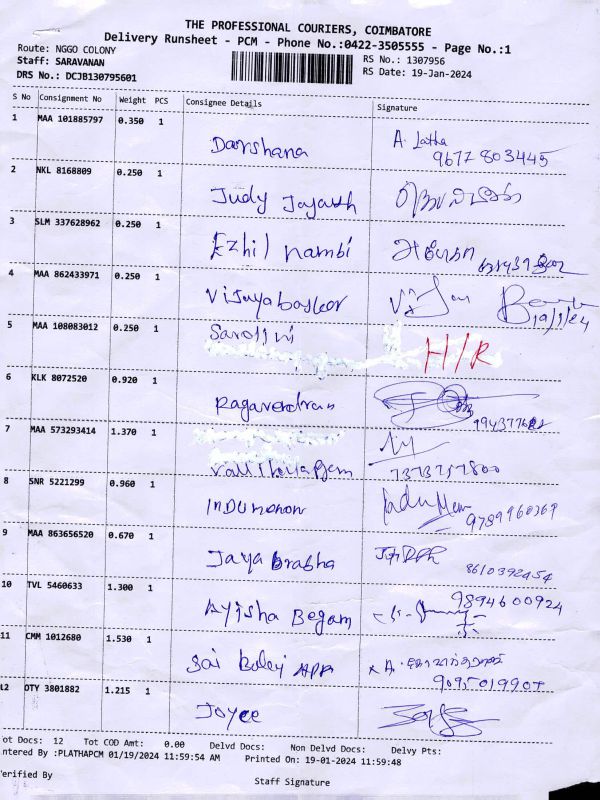 THE PROFESSIONAL COURIERS, COIMBATORE
Delivery Runsheet - PCM - Phone No.:0422-3505555 - Page No.:1
Route: NGGO COLONY
RS No.: 1307956
Staff: SARAVANAN
RS Date: 19-Jan-2024
DRS No.: DCJB130795601
S No Consignment No Weight PCS Consignee Details Signature
1 MAA 101885797 0.350 1
Darshana A. Latha
9677803445
2 NKL 8168809 0.250 1
Judy
3 SLM 337628962 0.250 1
Ezhil nambi
4 MAA 862433971 0.250 1
Vijayabaskar
19/1/24
5 MAA 108083012 0.250 1
H/R
6 KLK 8072520 0.920 1
Ragavendran
7 MAA 573293414 1.370 1
7373757800
8 SNR 5221299 0.960 1
9789960369
9 MAA 863656520 0.670 1
Jaya brabha
8610392454
10 TVL 5460633 1.300 1
9894600924
Ayisha Begam
11 CMM 1012680 1.530 1
Sai
9095019907
12 OTY 3801882 1.215 1
Joyce
ot Docs: 12 Tot COD Amt: 0.00 Delvd Docs: Non Delvd Docs: Delvy Pts:
ntered By :PLATHAPCM 01/19/2024 11:59:54 AM Printed On: 19-01-2024 11:59:48
erified By
Staff Signature